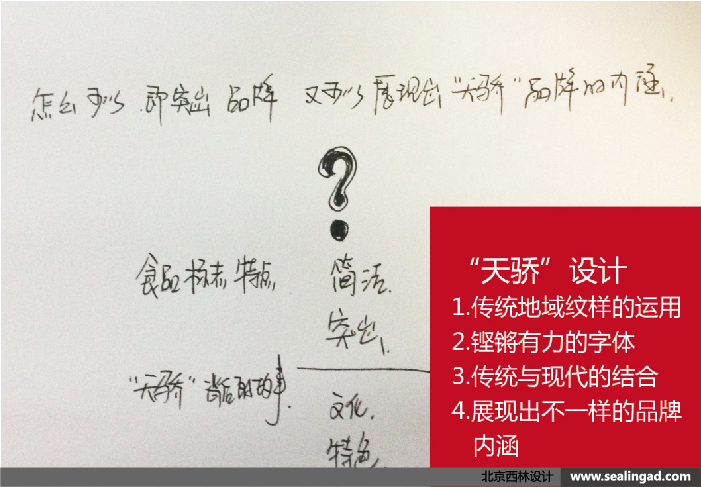 怎么可以 即突出 品牌 又可以展现出“天骄”品牌的内涵.
?
食品标志特点 简洁.
突出.
“天骄”背后的故事.
文化.
特色
“天骄”设计
1.传统地域纹样的运用
2.铿锵有力的字体
3.传统与现代的结合
4.展现出不一样的品牌
内涵
北京西林设计 www.sealingad.com